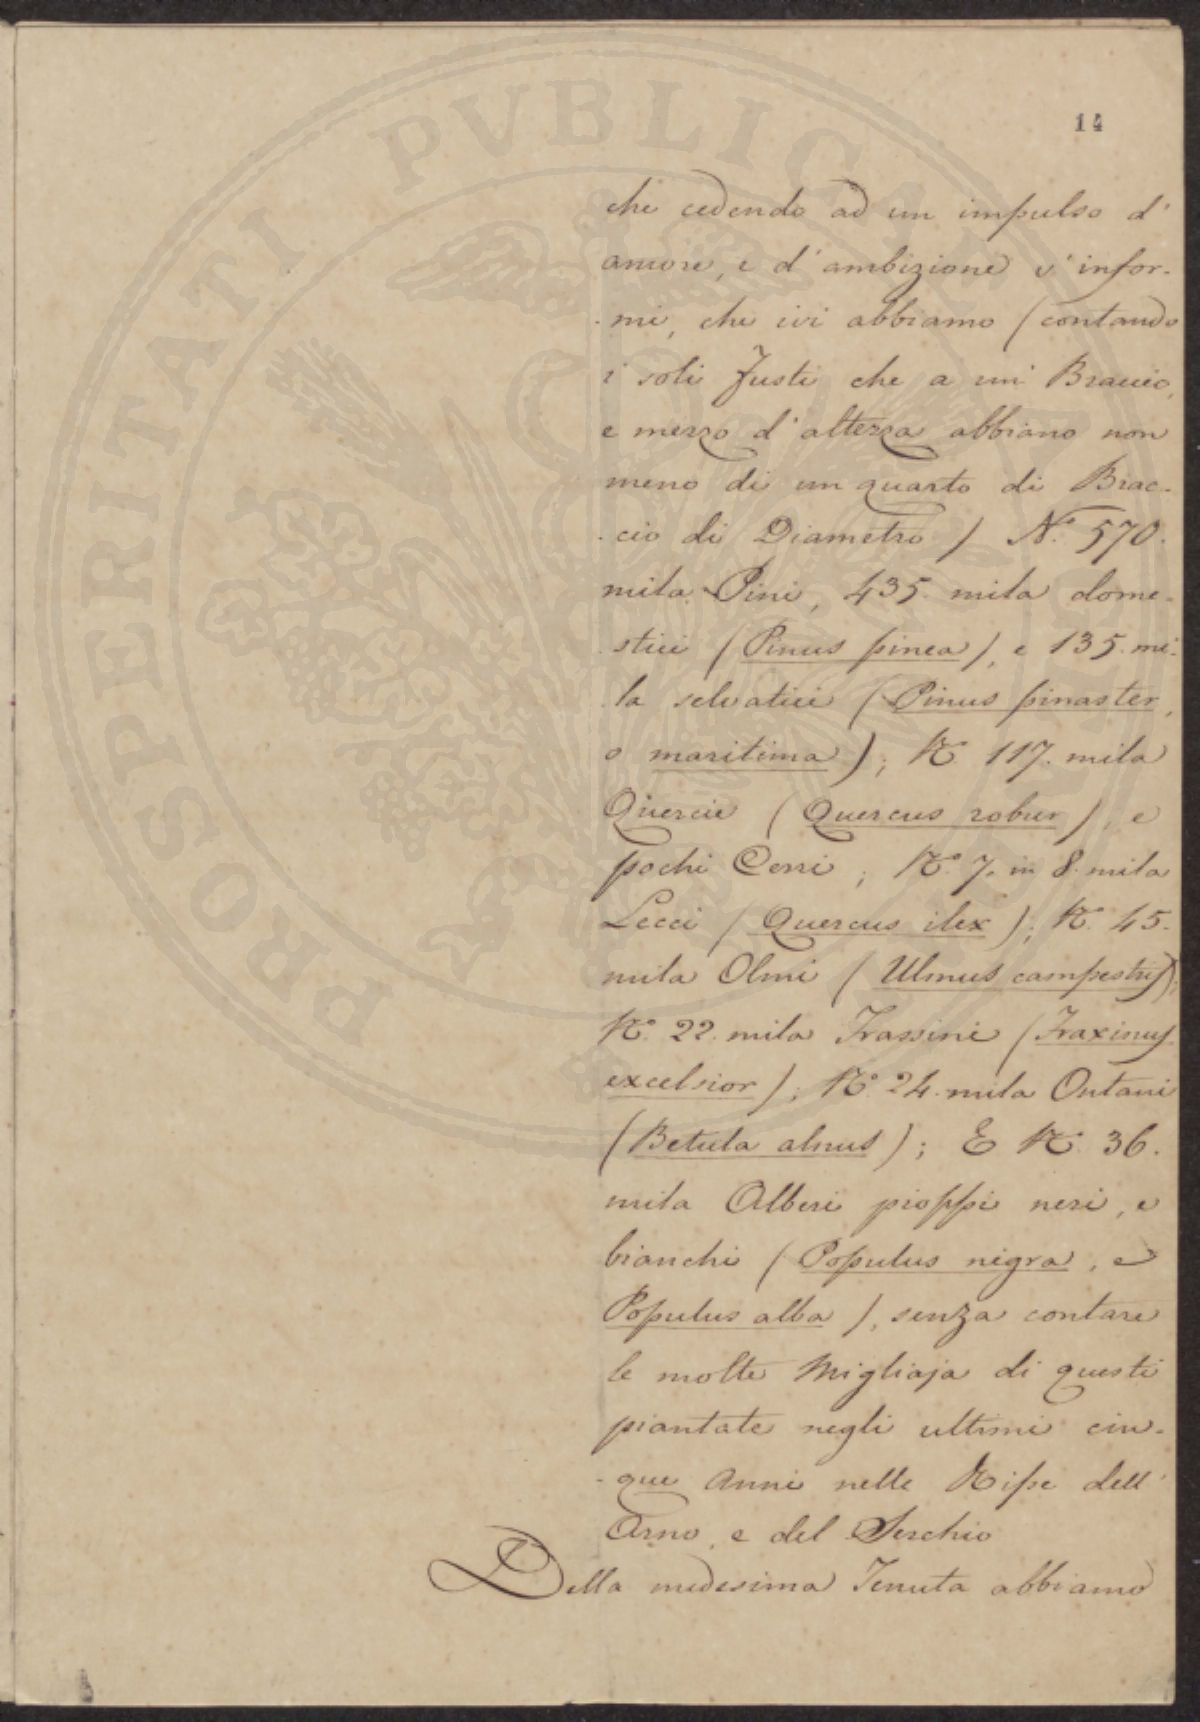 14
che cedendo ad un impulso d'
amore, e d'ambizione s'infor-
-mi, che ivi abbiamo (contando
i soli Fusti che a un Braccio,
e mezzo d'altezza abbiano non
meno di un quarto di Brac-
-cio di Diametro) N.° 570.
mila Pini, 435. mila dome-
-stici (Pinus pinea), e 135. mi-
-la selvatici (Pinus pinaster,
o maritima); N.° 117. mila
Quercie (Quercus robur), e
pochi Cerri; N.° 7. in 8. mila
Lecci (Quercus ilex); N.° 45.
mila Olmi (Ulmus campestris);
N.° 22. mila Frassini (Fraxinus
excelsior); N.° 24. mila Ontani
(Betula alnus); E N.° 36.
mila Alberi pioppi neri, e
bianchi (Populus nigra, e
Populus alba), senza contare
le molte Migliaja di questi
piantate negli ultimi cin-
-que Anni nelle Ripe dell'
Arno, e del Serchio
Della medesima Tenuta abbiamo
PROSPERITATI PVBLICAE